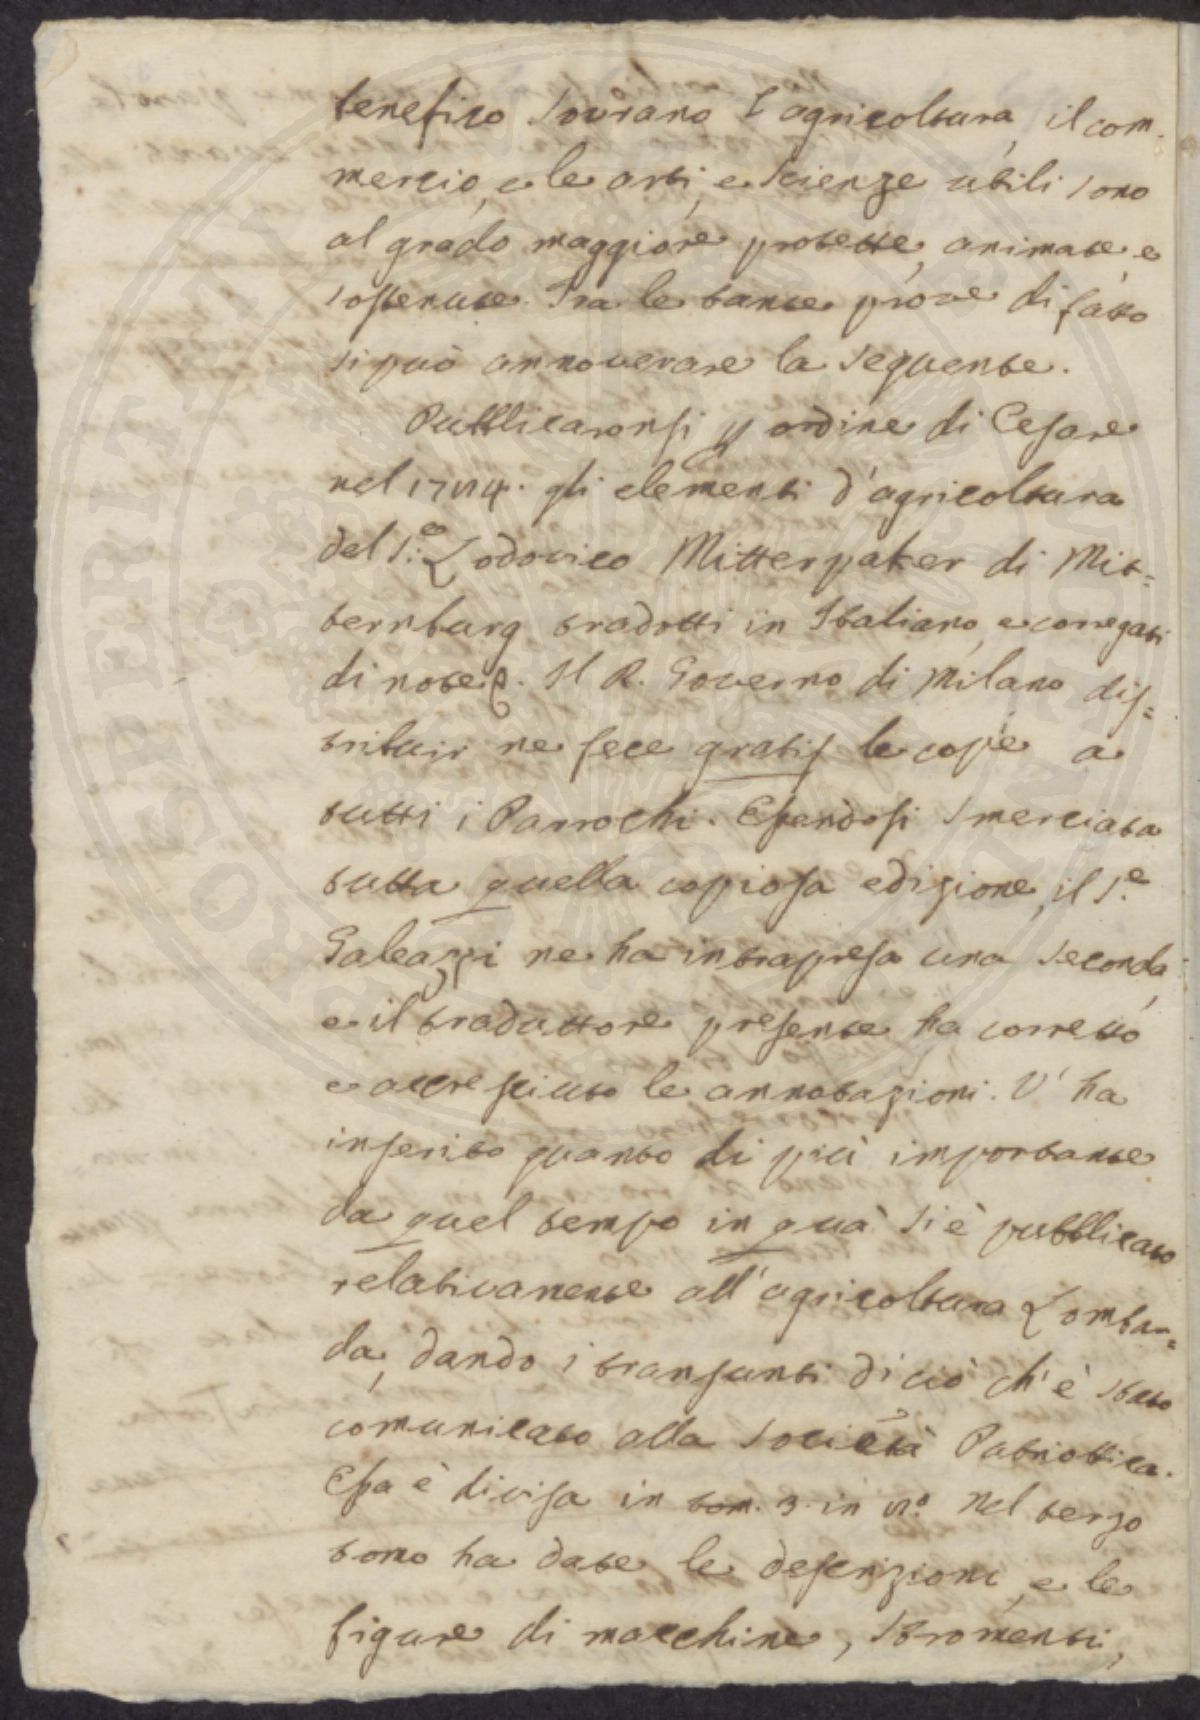 benefico Sovrano l'agricoltura, il com-
mercio, e le arti, e scienze utili sono
al grado maggiore protette, animate, e
sostenute. Tra le tante prove di fatto
si può annoverare la seguente.
Pubblicaronsi p ordine di Cesare
nel 1784. gli elementi d'agricoltura
del S.e Lodovico Mitterpaker di Mit=
ternburg tradotti in Italiano, e corregati
di note &. Il R. Governo di Milano dis=
tribuir ne fece gratis le copie a
tutti i Parrochi. Essendosi smerciata
tutta quella copiosa edizione, il S.e
Galeazzi ne ha intrapresa una seconda,
e il traduttore presente ha corretto
e accresciuto le annotazioni. V'ha
inserito quanto di più importante
da quel tempo in quà si è pubblicato
relativamente all'agricoltura Lombar=
da, dando i transunti di ciò ch'è stato
comunicato alla Società Patriottica.
Essa è divisa in tom. 3. in 8.o Nel terzo
tomo ha date le descrizioni, e le
figure di macchine, stromenti,
PROSPERITATI